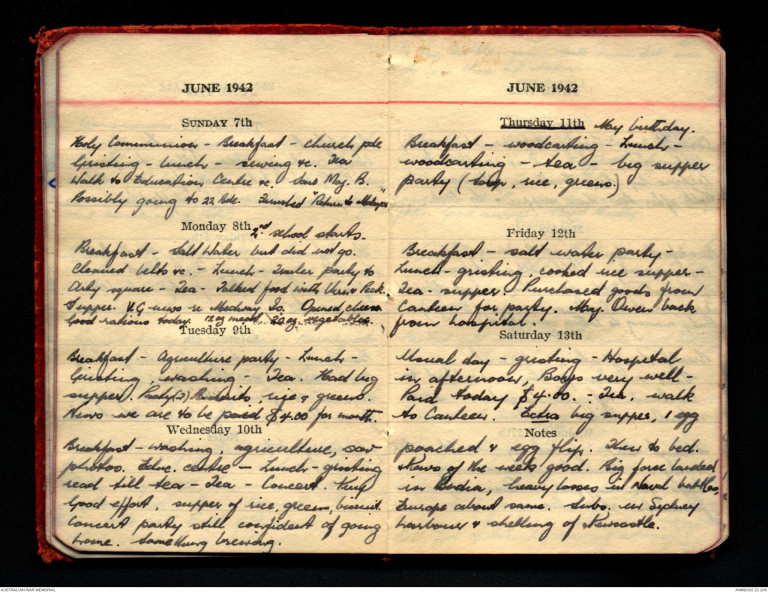 JUNE 1942
SUNDAY 7th
Holy Communion - Breakfast - church pde
Gristing - Lunch - sewing &c. Tea
Walk to Education Centre &c. Saw Maj. B.
Possibly going to 22 Bde. Finished "Return to Malaya"
Monday 8th 2nd school starts.
Breakfast - Salt Water but did not go.
Cleaned belts &c. - Lunch - Trailer party to
Arty square - Tea - Talked food with Vern & Peck.
Supper. V.G news re Midway Is. Opened cheese
Good rations today. 12 oz meat, 20 oz. vegetables.
Tuesday 9th
Breakfast - Agriculture party - Lunch -
Gristing - washing - Tea. Had big
supper. Biscuits, rice & greens.
News we are to be paid $4.00 for month.
Wednesday 10th
Breakfast - washing, agriculture, saw
photos. Educ. centre - Lunch - gristing
read till tea - Tea - Concert. Very
Good effort, supper of rice, greens, biscuit.
Concert party still confident of going
home. Something brewing.
JUNE 1942
Thursday 11th May birthday.
Breakfast - woodcarting - Lunch -
woodcarting - tea - big supper
party (soup, rice, greens)
Friday 12th
Breakfast - salt water party -
Lunch - gristing, cooked rice supper -
Tea - supper Purchased goods from
Canteen for party. Maj. Owen back
from hospital.
Saturday 13th
Usual day - gristing - Hospital
in afternoon, Boys very well -
Paid today $4.00. - Tea, walk
to Canteen. Extra big supper, 1 egg
Notes
poached & egg flip. Then to bed.
News of the week good. Big force landed
in India, heavy losses in Naval battles,
Europe about same. Subs. in Sydney
harbour & shelling of Newcastle.
AUSTRALIAN WAR MEMORIAL